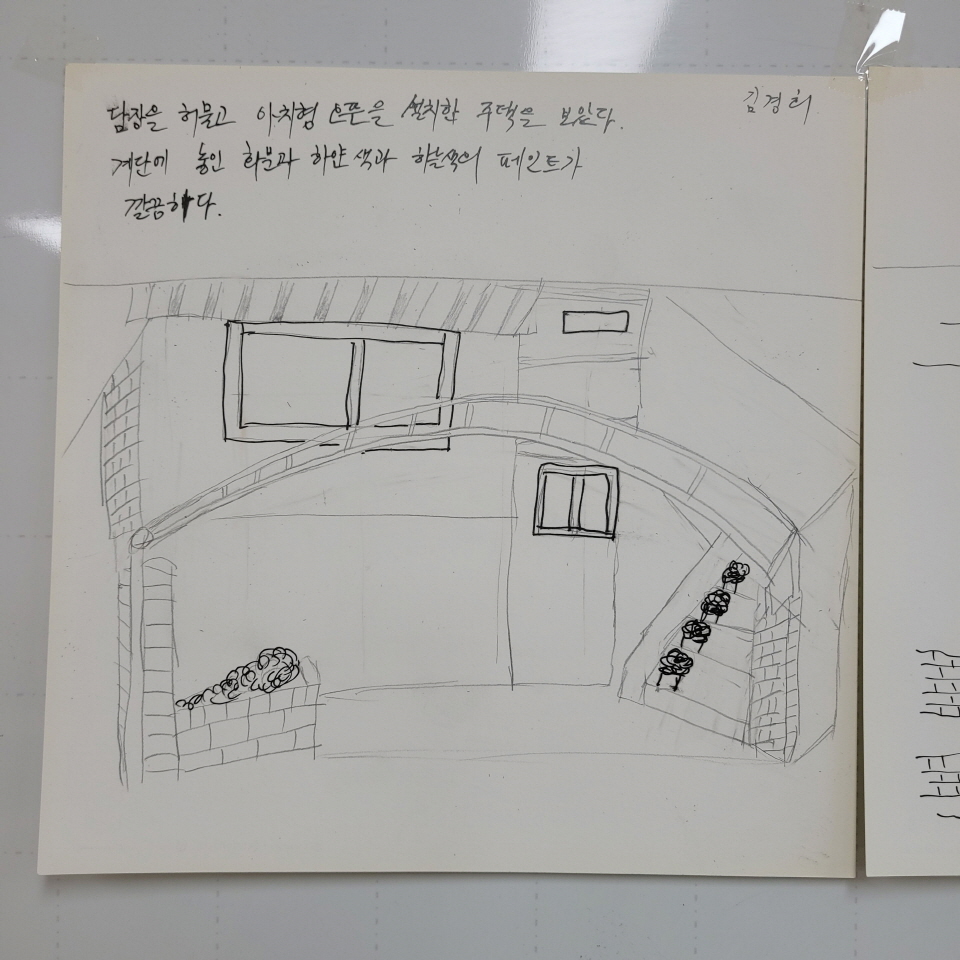 담장을 허물고 아치형 설치한 주택을 보았다.
김경희
계단에 놓인 화분과 하얀색과 하늘색의 페인트가
깔끔하다.